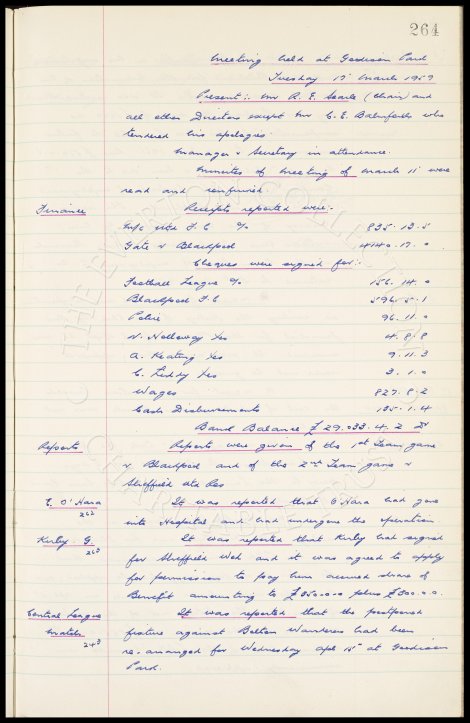 264
Meeting held at Goodison Park
Tuesday 17 March 1959
Present:- Mr R. E. Searle (Chair) and
all other Directors except Mr C. E. Balmforth who
tendered his apologies.
Manager & Secretary in attendance.
Minutes of Meeting of March 11 were
read and confirmed.
Finance Receipts reported were:-
M/c Utd F.C %
Gate v Blackpool 4140.17.0
Cheques were signed for:-
Football League % 156.14.0
Blackpool F.C 596.5.1
Police 96.11.0
N. Holloway 4.8.8
A. Keating 9.11.3
C. Liddy 3.1.0
Wages 827.8.2
Cash Disbursements 135.1.4
Bank Balance £29.033.4.2
Reports Reports were given of the 1st Team game
v Blackpool and of the 2nd Team game v
Sheffield Utd Res
E. O'Hara It was reported that O'Hara had gone
262
into Hospital and had undergone the operation.
Kirby. G. It was reported that Kirby had signed
263
for Sheffield Wed and it was agreed to apply
for permission to pay him accrued share of
Benefit amounting to plus
Central League It was reported that the postponed
Match
243
fixture against Bolton Wanderers had been
re-arranged for Wednesday Apl 15 at Goodison
Park.
THE EVERTON COLLECTION
CHARITABLE TRUST